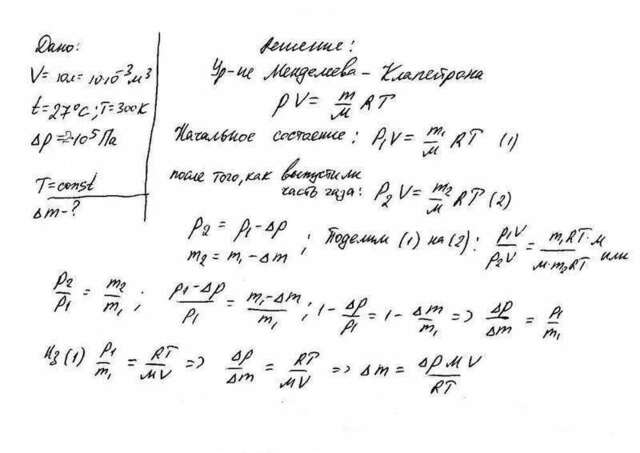 Дано:
V = 10л = 10·10⁻³м³
t = 27°C; T = 300K
Δp = 2·10⁵Па
T = const
Δm - ?
Решение:
Ур-ие Менделеева - Клапейрона
pV = m/M RT
Начальное состояние: P₁V = m₁/M RT (1)
после того, как выпустили
часть газа: P₂V = m₂/M RT (2)
P₂ = P₁ - Δp
m₂ = m₁ - Δm ; Поделим (1) на (2): P₁V/P₂V = m₁RT·M/M·m₂RT или
P₂/P₁ = m₂/m₁ ; P₁-Δp/P₁ = m₁-Δm/m₁ ; 1 - Δp/P₁ = 1 - Δm/m₁ => Δp/Δm = P₁/m₁
Из (1) P₁/m₁ = RT/MV => Δp/Δm = RT/MV => Δm = Δp M V/RT